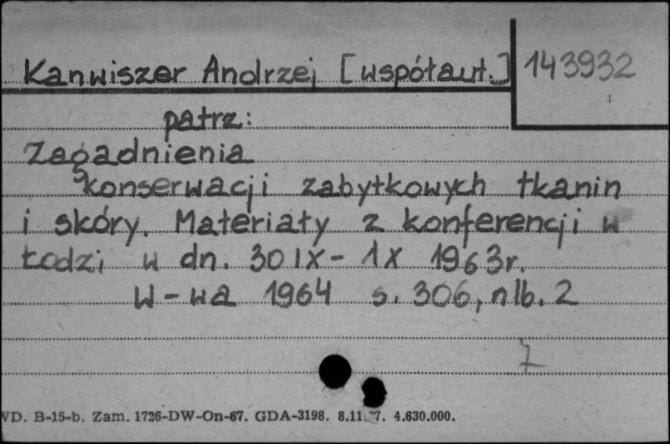 Kanwiszer Andrzej [współaut.] 143932
patrz:
Zagadnienia
konserwacji zabytkowych tkanin
i skóry. Materiały z konferencji w
Łodzi w dn. 30 IX - 1 X 1963r.
W-wa 1964 s. 306, nlb. 2
7
VD. B-15-b. Zam. 1726-DW-On-67. GDA-3198. 8.11. 7. 4.630.000.